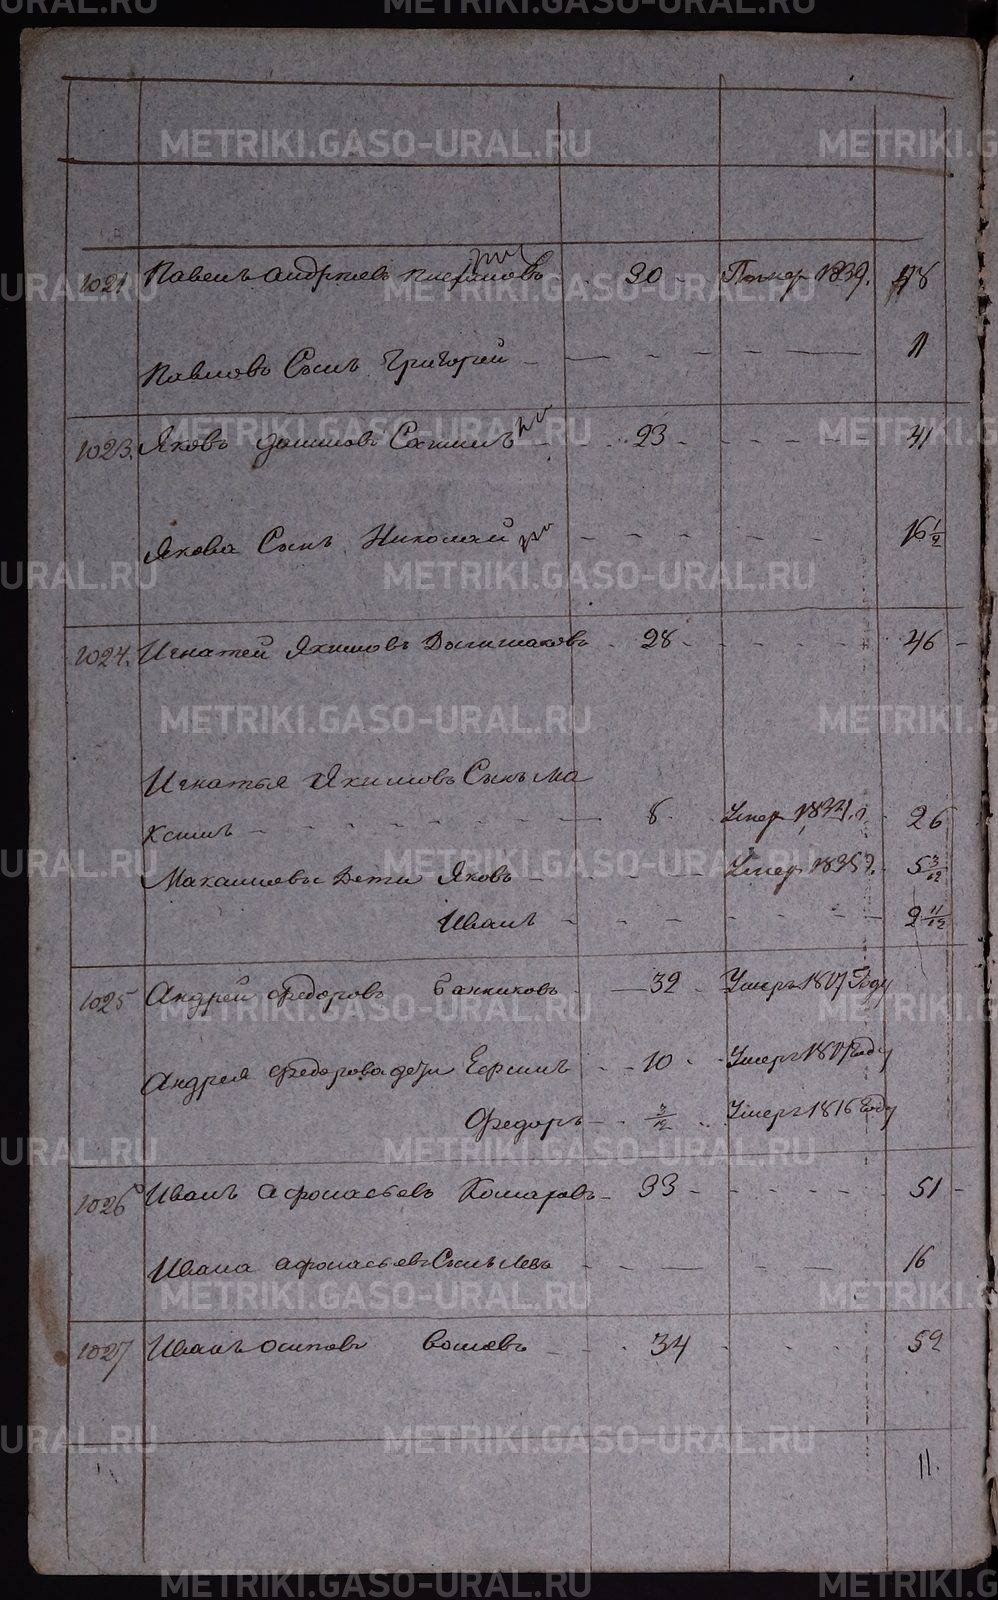 METRIKI.GASO-URAL.RU
1021 Павелъ Андреевъ 30 1839. 48
Павловъ Сынъ Григорей 11
1023. Яковъ 23 41
Якова Сынъ Николай 16 1/2
1024. Игнатей Якимовъ 28 46
Игнатья Якимовъ Сынъ Ма
ксимъ 8 Умер. 26
Максимовы Дети Яковъ Умер. 1835 г. 5 3/12
Иванъ 2 11/12
1025 Андрей Федоровъ Банниковъ 32 Умеръ Году
Андрея Федорова дети Ефимъ 10 Умеръ году
Федоръ 3/12 Умеръ 1816 году
1026 Иванъ Афонасьевъ Комаровъ 33 51
Ивана Афонасьевъ Сынъ Левъ 16
1027 Иванъ Осиповъ 34 52
11.